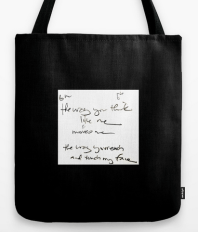 the way you think
like me
moves me
the way you reach
and touch my face